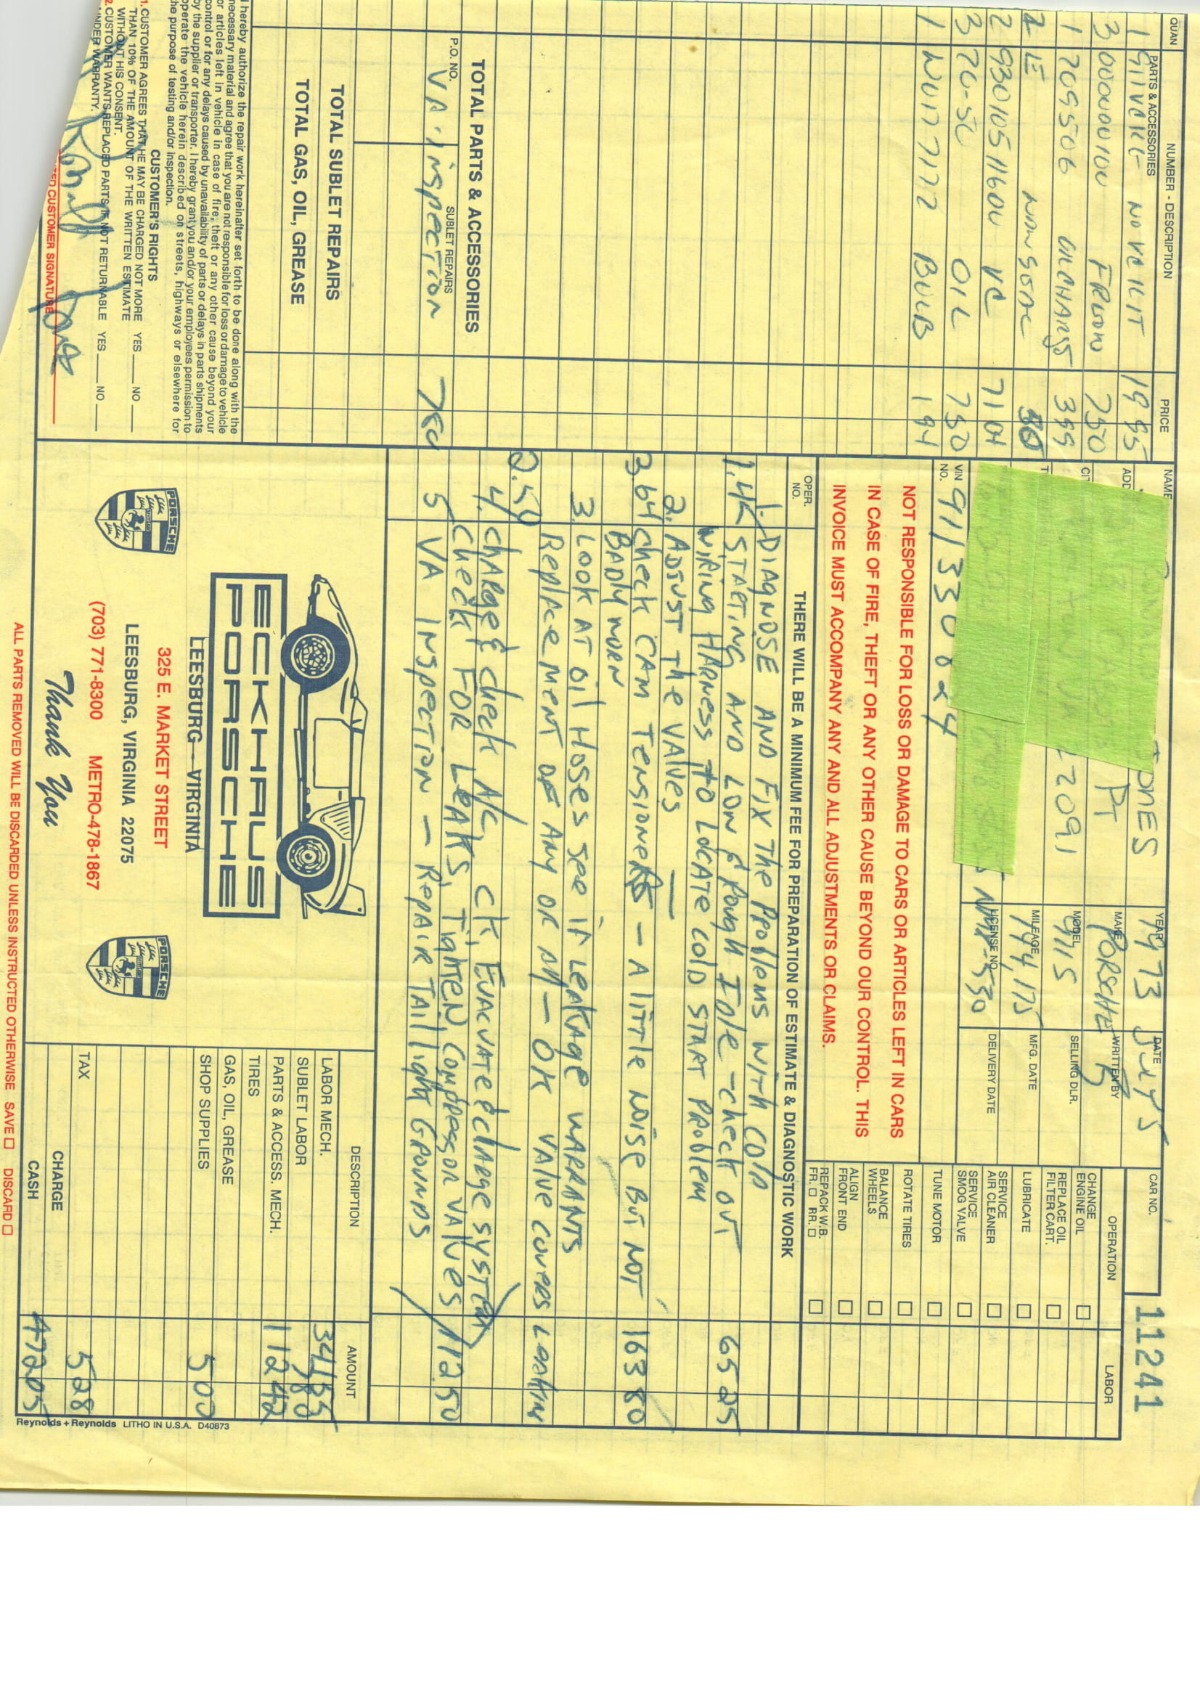 QUAN
PARTS & ACCESSORIES
NUMBER - DESCRIPTION
PRICE
1 911VCKIT NO VC KIT 1995
3 000000100 FREON 750
1 709506 OILCHARG 399
2 IE NONSOAC 50
2 93010511600 VC 7104
3 20-50 OIL 750
1 N0177172 BULB 194
TOTAL PARTS & ACCESSORIES
P.O. NO.
SUBLET REPAIRS
VA. Inspection 780
TOTAL SUBLET REPAIRS
TOTAL GAS, OIL, GREASE
I hereby authorize the repair work hereinafter set forth to be done along with the
necessary material and agree that you are not responsible for loss or damage to vehicle
or articles left in vehicle in case of fire, theft or any other cause beyond your
control or for any delays caused by unavailability of parts or delays in parts shipments
by the supplier or transporter. I hereby grant you and/or your employees permission to
operate the vehicle herein described on streets, highways or elsewhere for
the purpose of testing and/or inspection.
CUSTOMER'S RIGHTS
1. CUSTOMER AGREES THAT HE MAY BE CHARGED NOT MORE YES NO
THAN 10% OF THE AMOUNT OF THE WRITTEN ESTIMATE
WITHOUT HIS CONSENT.
2. CUSTOMER WANTS REPLACED PARTS IF NOT RETURNABLE YES NO
UNDER WARRANTY.
CUSTOMER SIGNATURE
CAR NO. 11241
NAME JONES
YEAR 1973
DATE July 5
ADD Pl
MAKE PORSCHE
WRITTEN BY
22091
MODEL 911S
SELLING DLR.
MILEAGE 144,175
MFG. DATE
LICENSE NO. 530
DELIVERY DATE
VIN NO. 9113300824
NOT RESPONSIBLE FOR LOSS OR DAMAGE TO CARS OR ARTICLES LEFT IN CARS
IN CASE OF FIRE, THEFT OR ANY OTHER CAUSE BEYOND OUR CONTROL. THIS
INVOICE MUST ACCOMPANY ANY AND ALL ADJUSTMENTS OR CLAIMS.
OPERATION
LABOR
CHANGE ENGINE OIL
REPLACE OIL FILTER CART.
LUBRICATE
SERVICE AIR CLEANER
SERVICE SMOG VALVE
TUNE MOTOR
ROTATE TIRES
BALANCE WHEELS
ALIGN FRONT END
REPACK W.B. FR. RR.
OPER. NO.
THERE WILL BE A MINIMUM FEE FOR PREPARATION OF ESTIMATE & DIAGNOSTIC WORK
1. DIAGNOSE AND FIX THE PROBLEMS WITH COLD
1.4K STARTING AND LOW & ROUGH IDLE - check out 65 25
WIRING HARNESS TO LOCATE COLD START PROBLEM
2. ADJUST THE VALVES
3.64 check CAM TENSIONERS - A LITTLE NOISE BUT NOT 163 80
BADLY WORN
3 LOOK AT OIL HOSES SEE IF LEAKAGE WARRANTS
Replacement OF ANY OR All - OK VALVE COVERS LEAKIN
2.50
4. CHARGE & check A/C, CK, EVACUATE & CHARGE SYSTEM
check FOR LEAKS, TIGHTEN COMPRESSOR VALVES 112.50
5 VA INSPECTION - REPAIR Taillight GROUNDS
ECKHAUS
PORSCHE
LEESBURG - VIRGINIA
325 E. MARKET STREET
LEESBURG, VIRGINIA 22075
(703) 771-8300 METRO-478-1867
Thank You
PORSCHE
PORSCHE
DESCRIPTION
AMOUNT
LABOR MECH. 34155
SUBLET LABOR 780
PARTS & ACCESS. MECH. 11242
TIRES
GAS, OIL, GREASE
SHOP SUPPLIES 500
TAX 528
CHARGE
CASH 47205
ALL PARTS REMOVED WILL BE DISCARDED UNLESS INSTRUCTED OTHERWISE SAVE DISCARD
Reynolds + Reynolds LITHO IN U.S.A. D40873